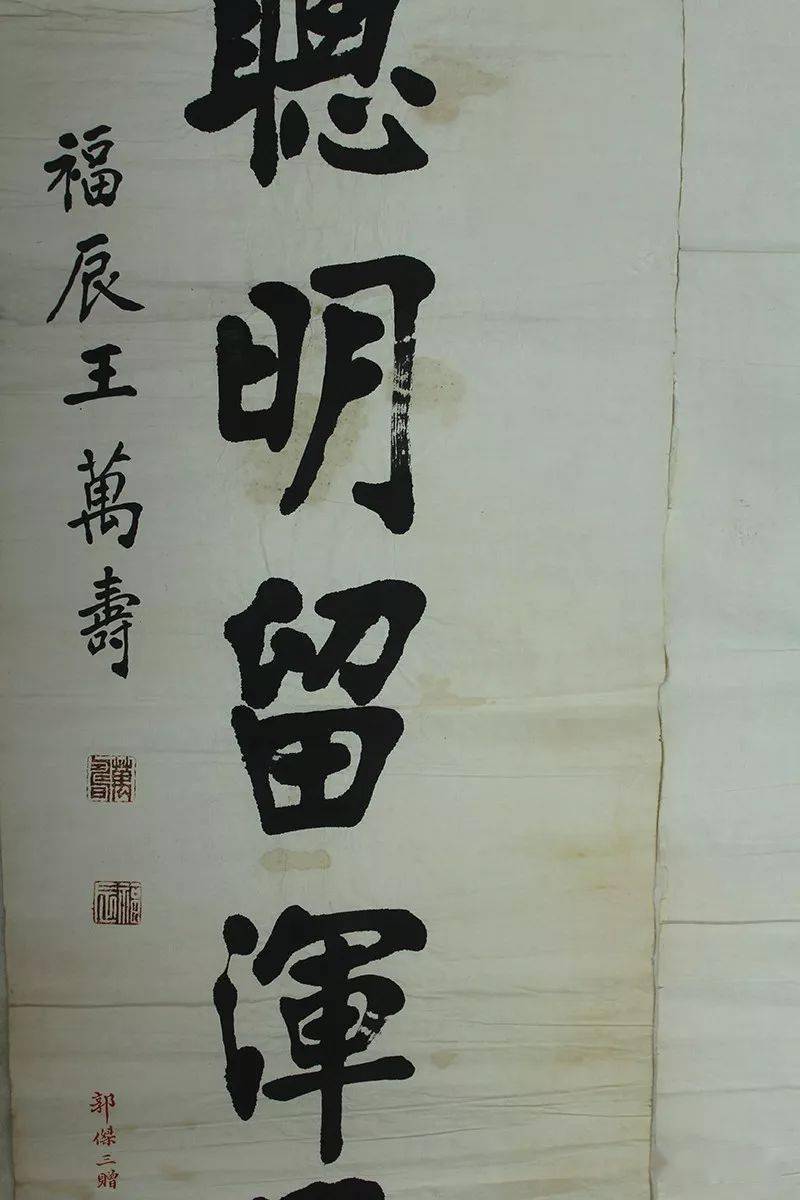 聰明留渾
福辰王萬壽
萬壽
福辰
郭傑三贈